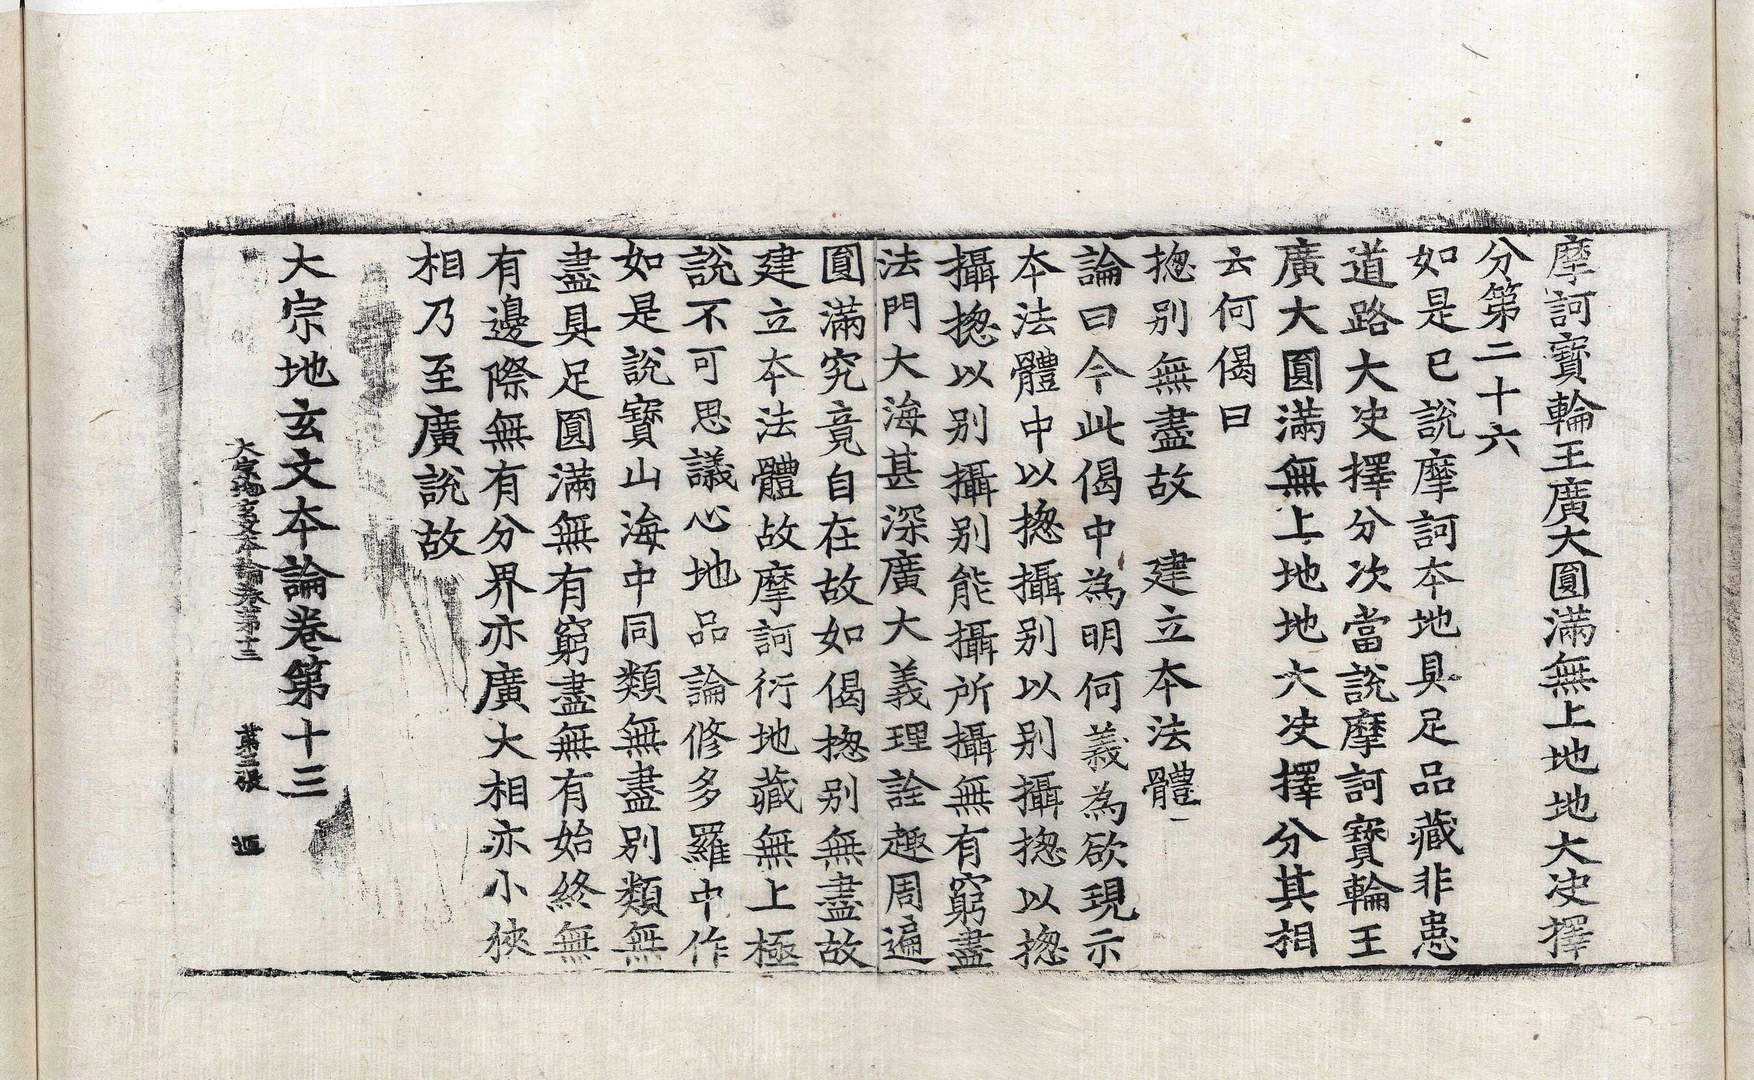 摩訶寶輪王廣大圓滿無上地地大决擇
分第二十六
如是已說摩訶本地具足品藏非患
道路大决擇分次當說摩訶寶輪王
廣大圓滿無上地地大决擇分其相
云何偈曰
揔别無盡故　建立本法體
論曰今此偈中為明何義為欲現示
本法體中以揔攝别以别攝揔以揔
攝揔以别攝别能攝所攝無有窮盡
法門大海甚深廣大義理詮趣周遍
圓滿究竟自在故如偈揔别無盡故
建立本法體故摩訶衍地藏無上極
說不可思議心地品論修多羅中作
如是說寶山海中同類無盡别類無
盡具足圓滿無有窮盡無有始終無
有邊際無有分界亦廣大相亦小狹
相乃至廣說故
大宗地玄文本論卷第十三
大宗地玄文本論卷第十三　第三張